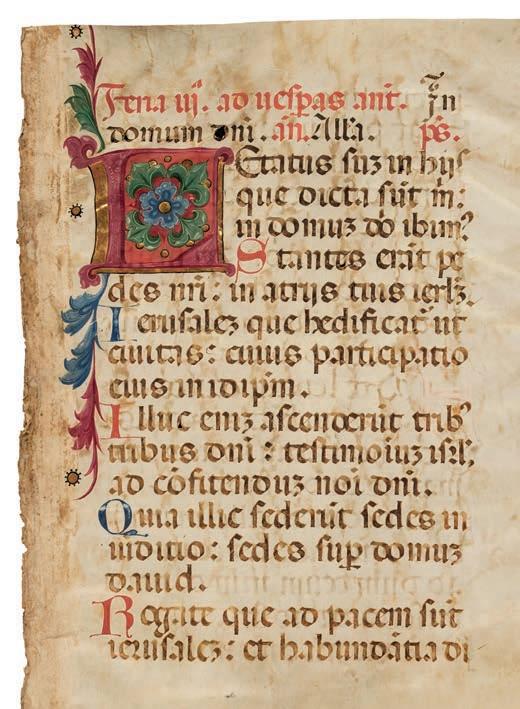 Feria iij. ad uesperas ant. In
domum dni. an. Alla. ps.
LEtatus suz in hijs
que dicta sūt m̄:
in domuz do ibimꝰ
Stantes erāt pe
des nri: in atrijs tuis ierlz.
Ierusalez que hedificat̄ ut
ciuitas: cuius participatio
eius in idip̄m.
Illuc eniz ascenderūt tribꝰ
tribus dnī: testimoiuz isrl;
ad cōfitenduz noi dnī.
Quia illic sederūt sedes in
iuditio: sedes sup̄ domuz
dauid.
Rogate que ad pacem sūt
ierusalez: et habundātia di